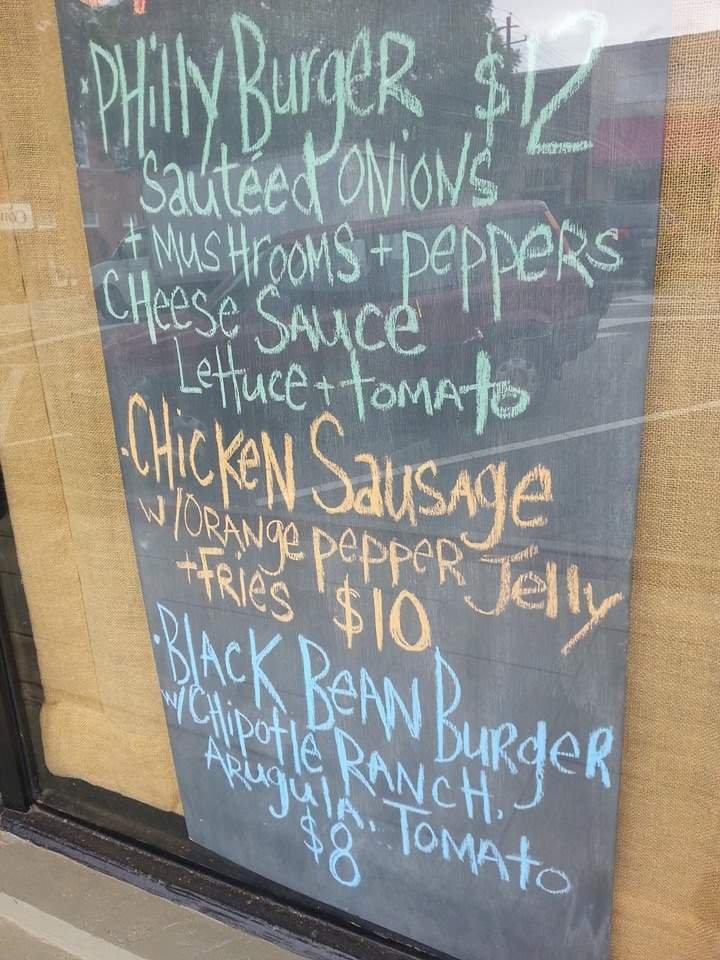 ·PHilly BurgeR $12
Sautéed ONiONS
+ MusHrooMS + peppeRs
CHeese SAuce
Lettuce + toMAto
·CHicKeN SausAge
w/ORANge pepper Jelly
+FRies $10
·BlAcK BeAN BurgeR
w/CHipotle RANcH,
ARugulA, ToMAto
$8